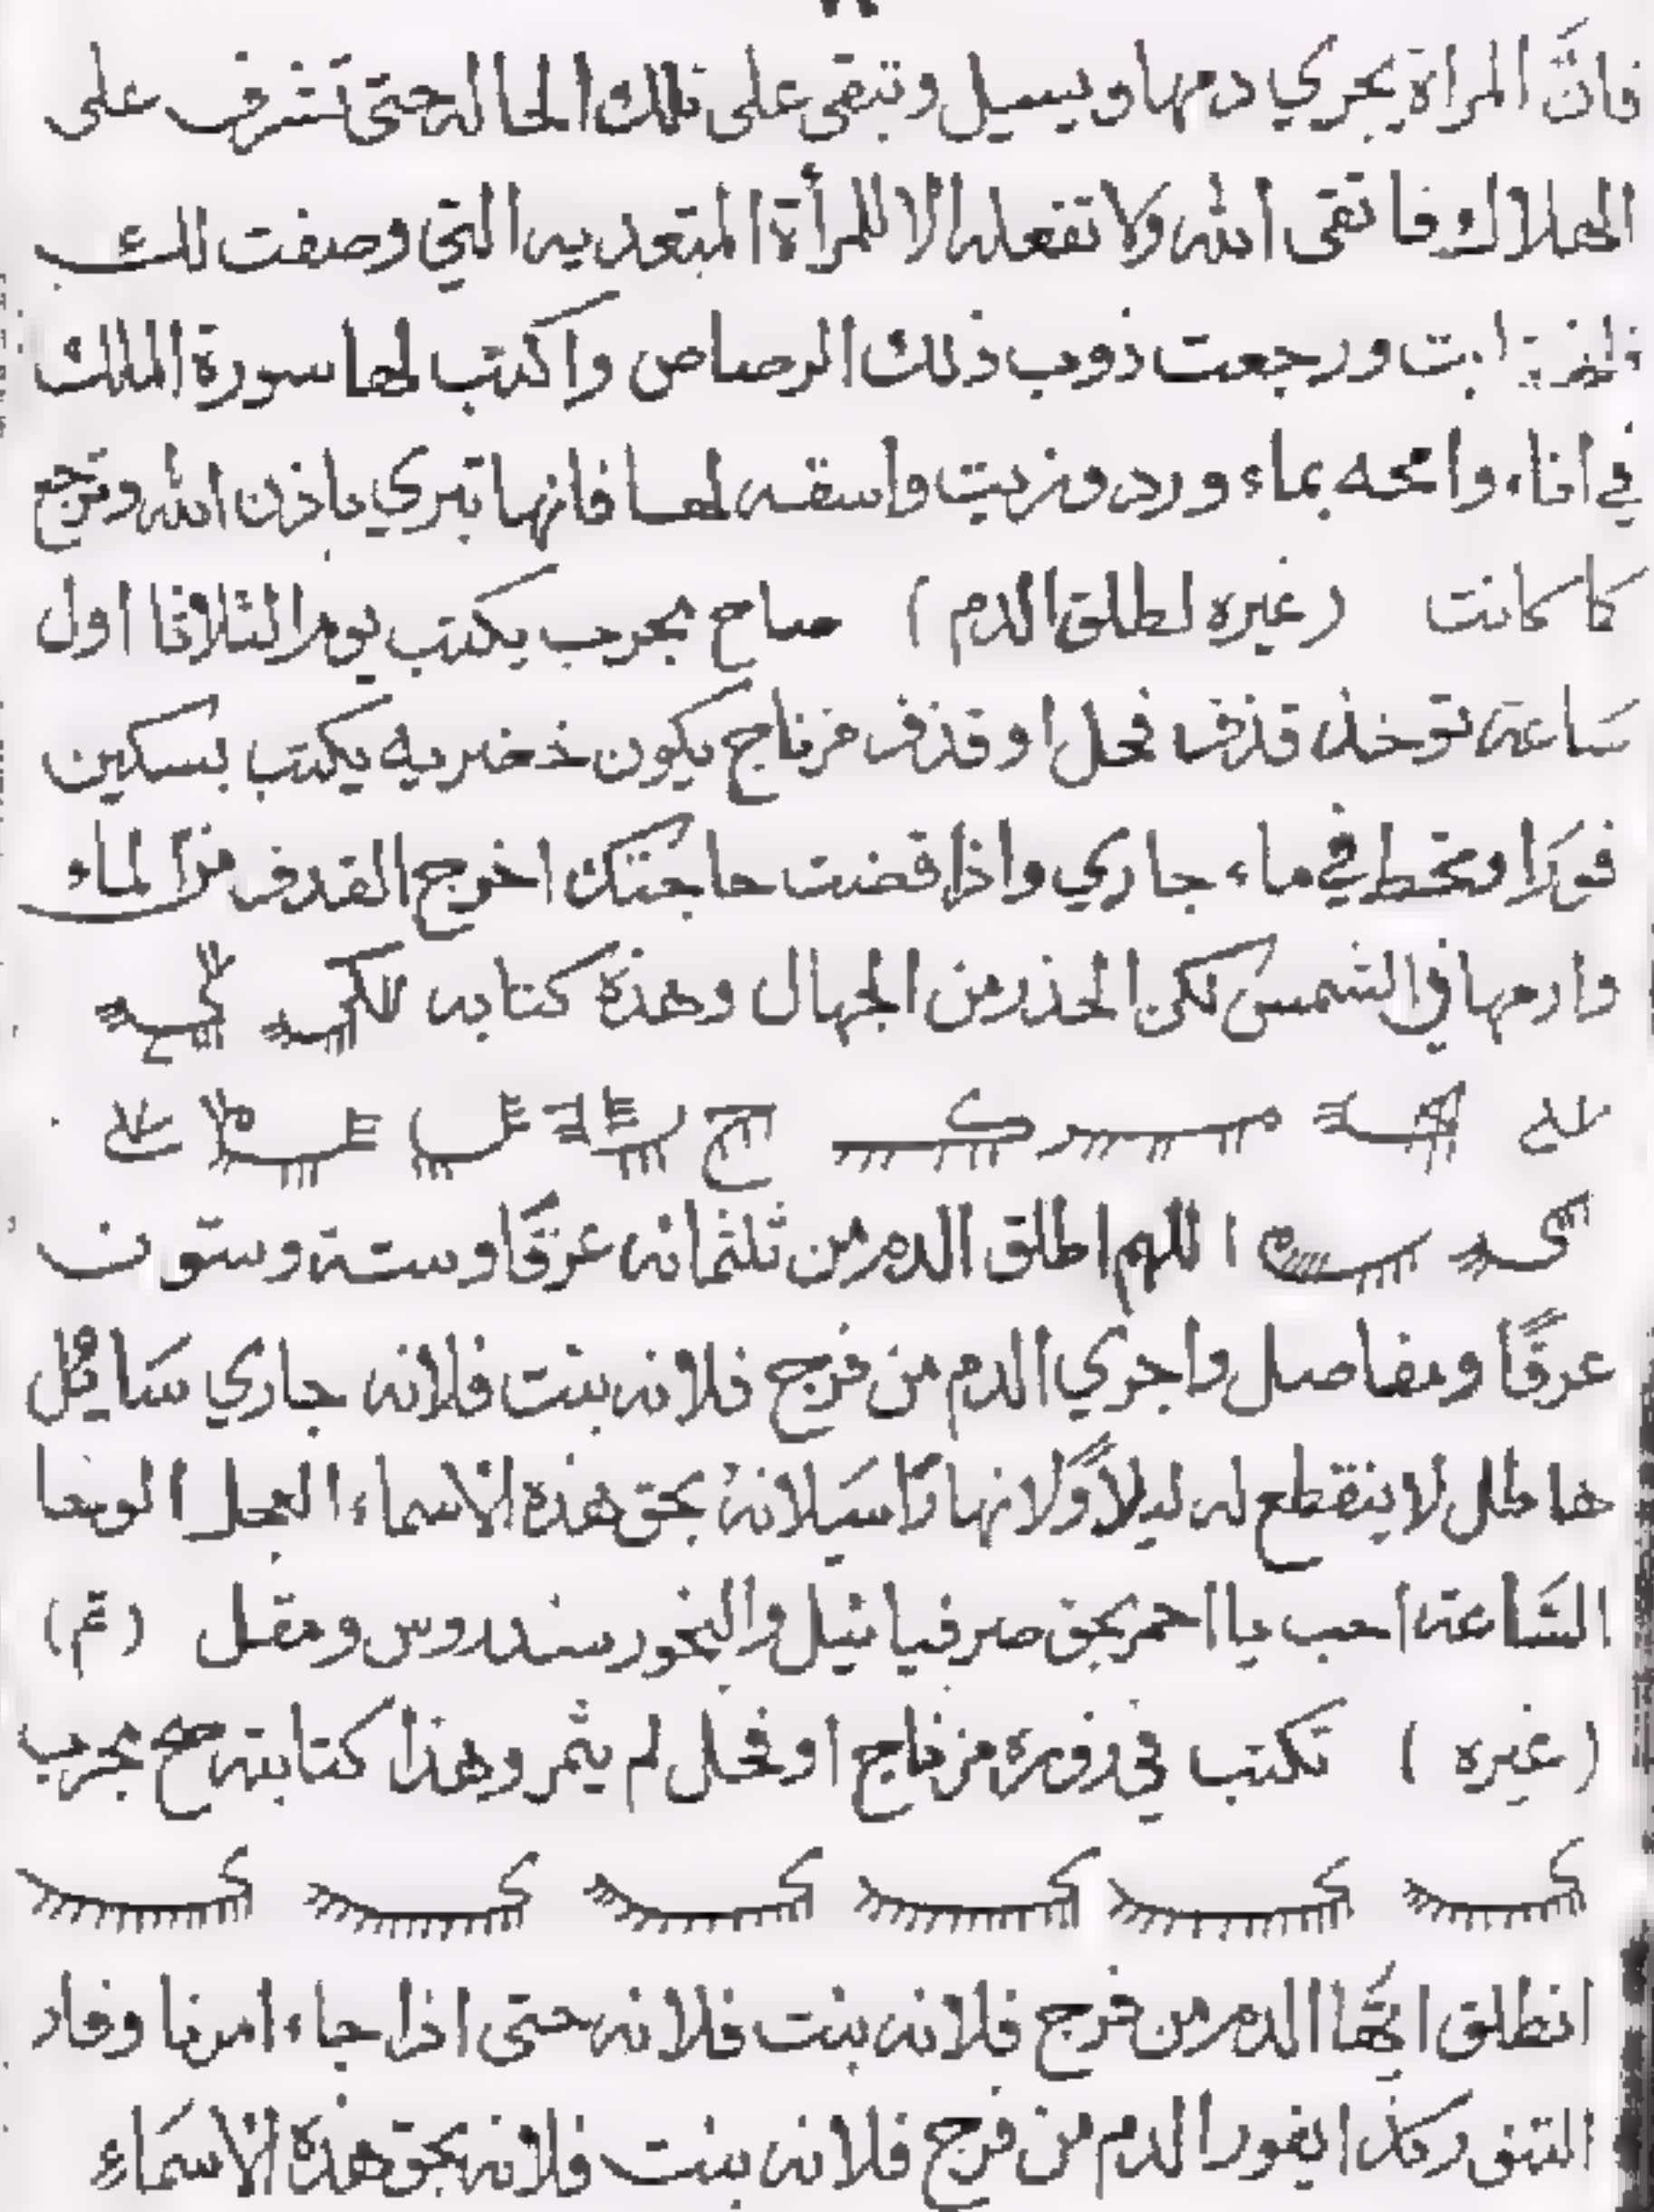 فانَّ المراة يجري دمها ويسيل وتبقى على تلك الحاله حتى تشرف على
الهلاك فاتقى الله ولا تفعله الا للمرأة المتعديه التي وصفت لك
ورجعت ذوب ذلك الرصاص واكتب لها سورة الملك
في اناء وامحه بماء ورد وزيت واسقه لها فانها تبري باذن الله وترجع
كما كانت (غيره لطلق الدم) صاح مجرب يكتب يوم الثلاثا اول
سَاعة توخذ قذف فحل او قذف من ناج يكون خضريه يكتب بسكين
فورًا وتحط في ماء جاري واذا قضت حاجتك اخرج القدف من الماء
وارمها في الشمس لكن الحذر من الجهال وهذه كتابه
اللهم اطلق الدم من ثلثمائه عرقًا وستة وستون
عرقًا ومفاصل واجري الدم من فرج فلانه بنت فلانه جاري سَايل
هاطل لا ينقطع له ليلاً ولا نهارًا سيلانهُ بحق هذه الاسماء العجل الوحا
السَّاعة اجب يا احمر بحق صرفيائيل والبخور سندروس ومقل (تم)
(غيره) تكتب في من ناج او فحل لم يثمر وهذا كتابته صح مجرب
انطلق ايُّها الدم من فرج فلانه بنت فلانه حتى اذا جاء امرنا وفار
التنور كذا يفور الدم من فرج فلانه بنت فلانه بحق هذه الاسمَاءِ